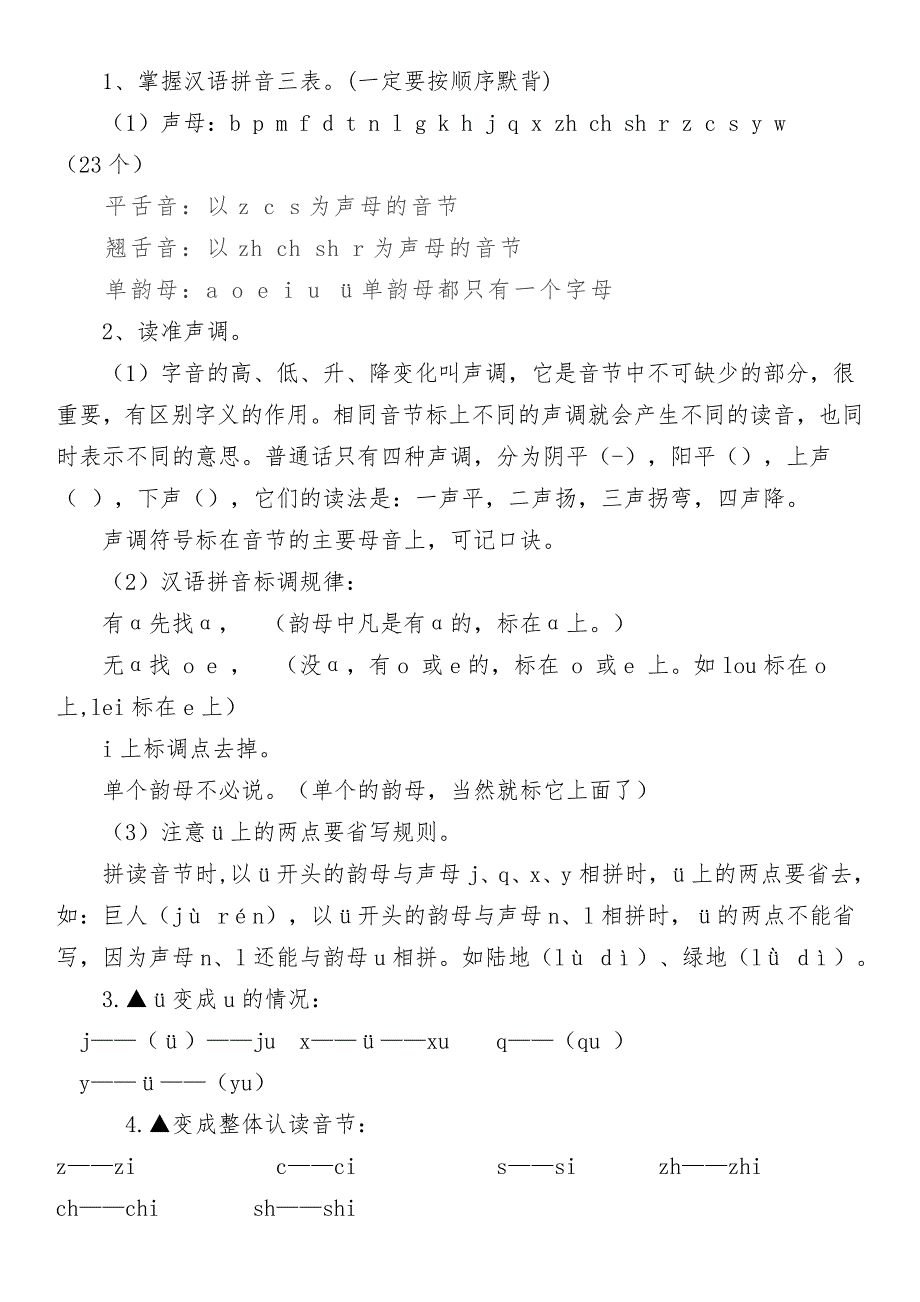 1、掌握汉语拼音三表。(一定要按顺序默背)
（1）声母：b p m f d t n l g k h j q x zh ch sh r z c s y w
（23 个）
平舌音：以 z c s 为声母的音节
翘舌音：以 zh ch sh r 为声母的音节
单韵母：a o e i u ü 单韵母都只有一个字母
2、读准声调。
（1）字音的高、低、升、降变化叫声调，它是音节中不可缺少的部分，很
重要，有区别字义的作用。相同音节标上不同的声调就会产生不同的读音，也同
时表示不同的意思。普通话只有四种声调，分为阴平（-），阳平（），上声
（ ），下声（），它们的读法是：一声平，二声扬，三声拐弯，四声降。
声调符号标在音节的主要母音上，可记口诀。
（2）汉语拼音标调规律：
有ɑ先找ɑ，　（韵母中凡是有ɑ的，标在ɑ上。）
无ɑ找 o e ，　（没ɑ，有 o 或 e 的，标在 o 或 e 上。如 lou 标在 o
上,lei 标在 e 上）
i 上标调点去掉。
单个韵母不必说。（单个的韵母，当然就标它上面了）
（3）注意 ü 上的两点要省写规则。
拼读音节时,以 ü 开头的韵母与声母 j、q、x、y 相拼时，ü 上的两点要省去，
如：巨人（jù rén），以 ü 开头的韵母与声母 n、l 相拼时，ü 的两点不能省
写，因为声母 n、l 还能与韵母 u 相拼。如陆地（lù dì）、绿地（lǜ dì）。
3.▲ü 变成 u 的情况：
j——（ü）——ju x——ü——xu q——（qu ）
y——ü——（yu）
4.▲变成整体认读音节：
z——zi c——ci s——si zh——zhi
ch——chi sh——shi